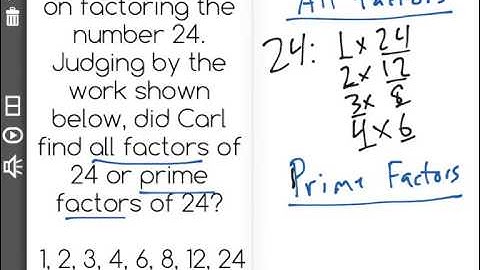 on factoring the
number 24.
Judging by the
work shown
below, did Carl
find all factors of
24 or prime
factors of 24?
1, 2, 3, 4, 6, 8, 12, 24
All Factors
24: 1 x 24
2 x 12
3 x 8
4 x 6
Prime Factors